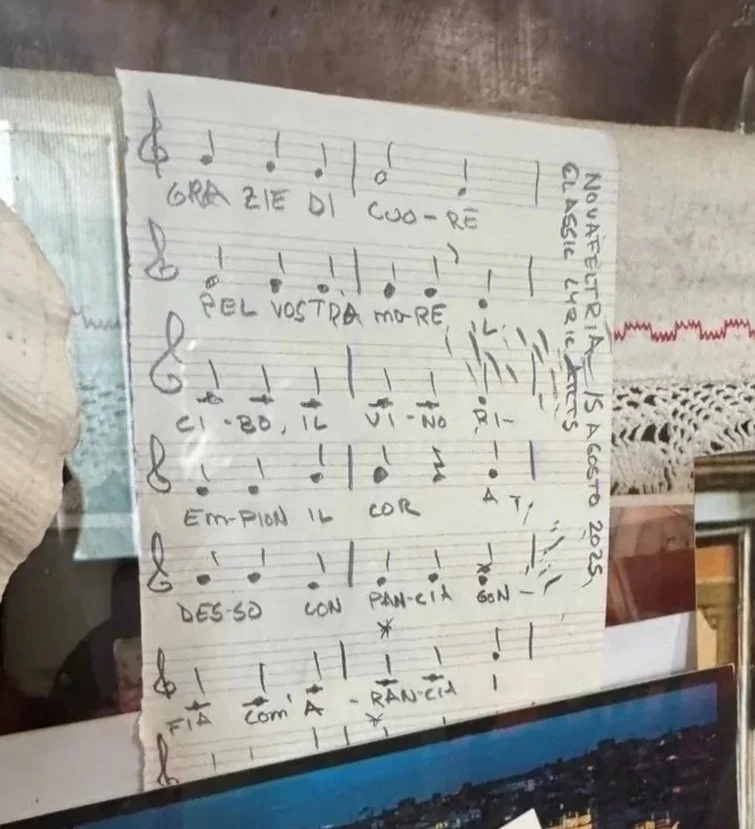 GRA ZIE DI CUO-RE
PEL VOSTRA MO-RE, IL
CI-BO, IL VI-NO RI-
EM-PION IL COR A
DES-SO CON PAN-CIA GON-
FIA COM' A-RAN-CIA
NOVAFELTRIA 15 AGOSTO 2025,
CLASSIC LYRIC ARTS